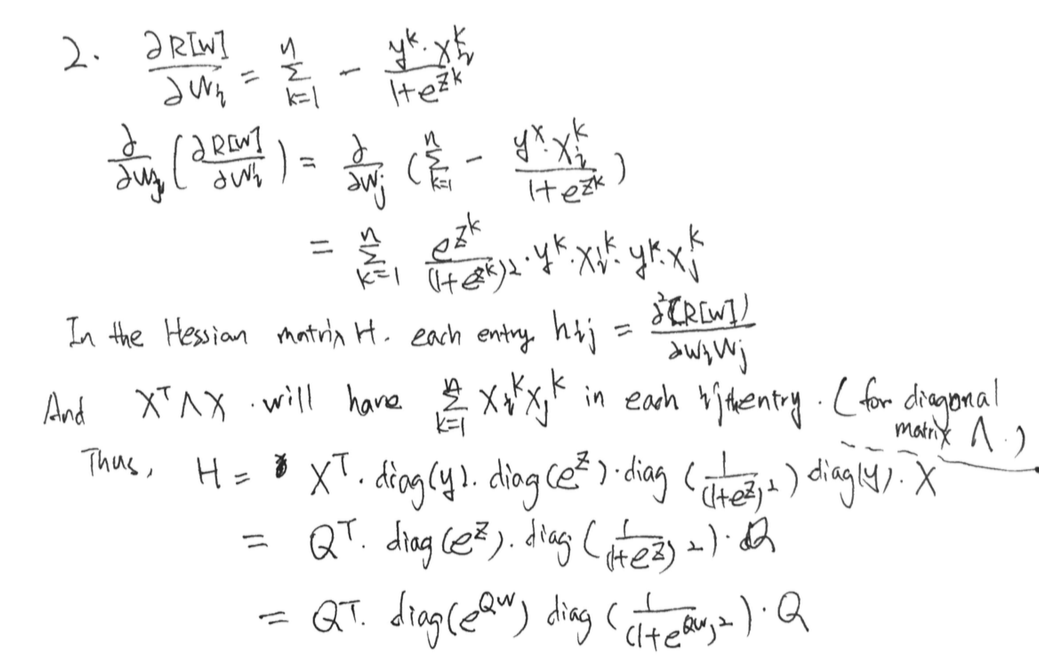 2. ∂R[w]/∂wᵢ = Σ_{k=1}^{n} − (yᵏ·xᵢᵏ)/(1+e^{zᵏ})
∂/∂wⱼ (∂R[w]/∂wᵢ) = ∂/∂wⱼ (Σ_{k=1}^{n} − (yˣ·xᵢᵏ)/(1+e^{zᵏ}))
= Σ_{k=1}^{n} e^{zᵏ}/(1+e^{zᵏ})² · yᵏ·xᵢᵏ·yᵏ·xⱼᵏ
In the Hessian matrix H. each entry hᵢⱼ = ∂²(R[w])/∂wᵢwⱼ
And XᵀΛX will have Σ_{k=1}^{n} xᵢᵏxⱼᵏ in each ijth entry. (for diagonal
matrix Λ.)
Thus, H = Xᵀ·diag(y)·diag(e^z)·diag(1/(1+e^z)²) diag(y)·X
= Qᵀ·diag(e^z)·diag(1/(1+e^z)²)·Q
= Qᵀ·diag(e^{Qw}) diag(1/(1+e^{Qw})²)·Q